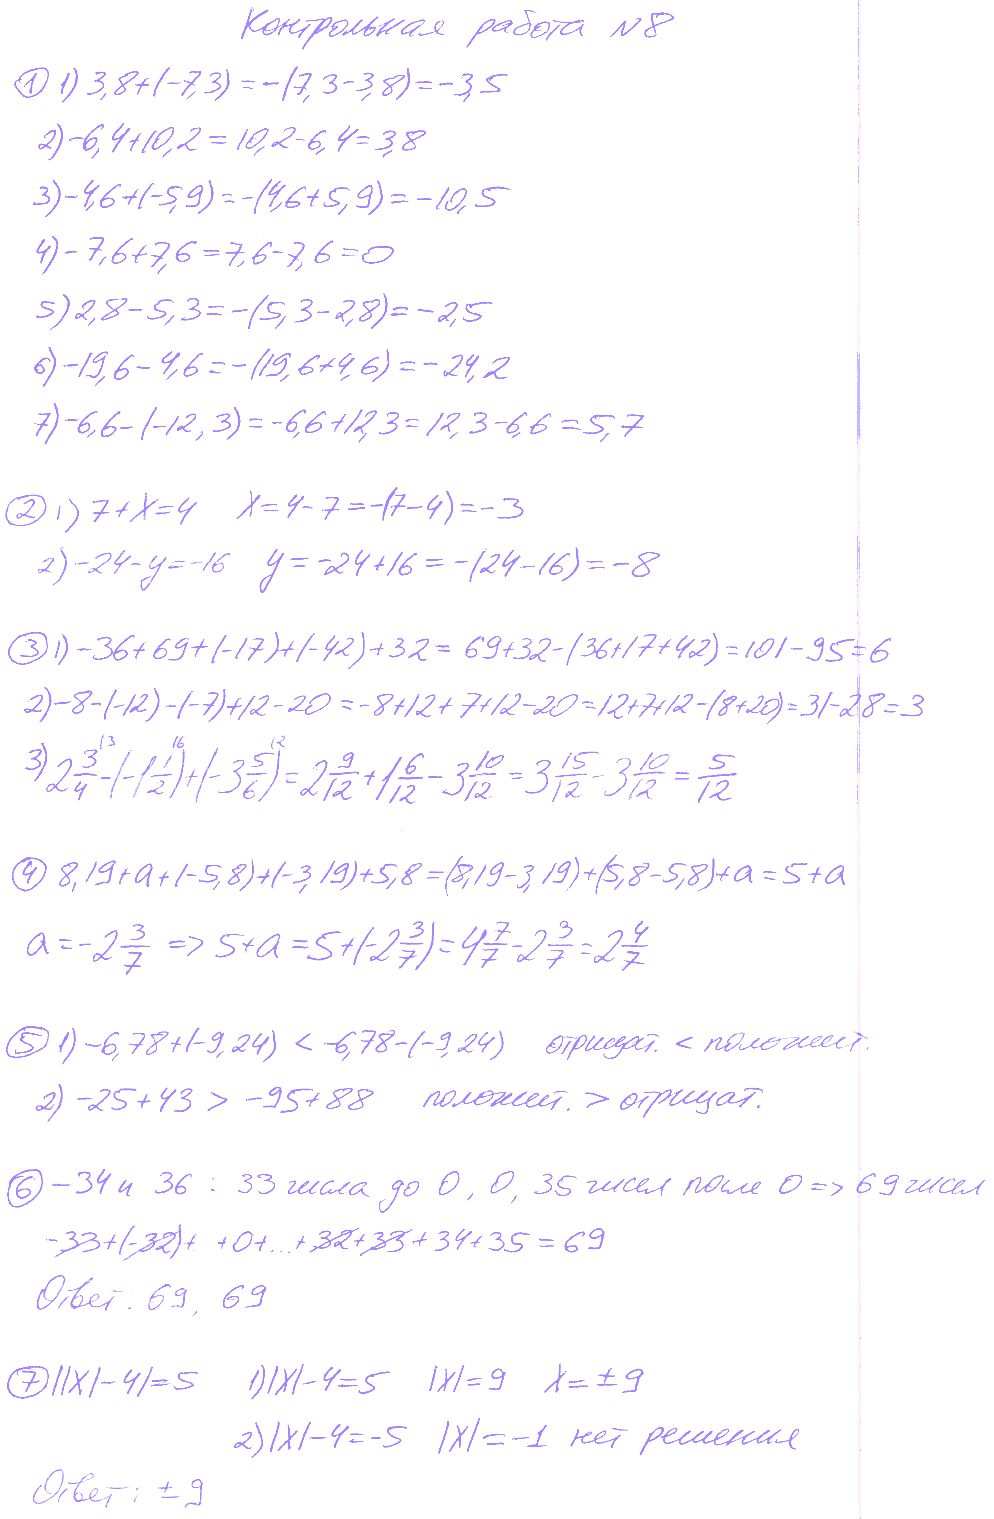 Контрольная работа №8
① 1) 3,8+(-7,3)=-(7,3-3,8)=-3,5
2) -6,4+10,2=10,2-6,4=3,8
3) -4,6+(-5,9)=-(4,6+5,9)=-10,5
4) -7,6+7,6=7,6-7,6=0
5) 2,8-5,3=-(5,3-2,8)=-2,5
6) -19,6-4,6=-(19,6+4,6)=-24,2
7) -6,6-(-12,3)=-6,6+12,3=12,3-6,6=5,7
② 1) 7+x=4 x=4-7=-(7-4)=-3
2) -24-y=-16 y=-24+16=-(24-16)=-8
③ 1) -36+69+(-17)+(-42)+32=69+32-(36+17+42)=101-95=6
2) -8-(-12)-(-7)+12-20=-8+12+7+12-20=12+7+12-(8+20)=31-28=3
3) 2 3/4 \3 -(-1 1/2 \6)+(-3 5/6 \2)=2 9/12+1 6/12-3 10/12=3 15/12-3 10/12=5/12
④ 8,19+a+(-5,8)+(-3,19)+5,8=(8,19-3,19)+(5,8-5,8)+a=5+a
a=-2 3/7 => 5+a=5+(-2 3/7)=4 7/7-2 3/7=2 4/7
⑤ 1) -6,78+(-9,24) < -6,78-(-9,24) отрицат. < положит.
2) -25+43 > -95+88 положит. > отрицат.
⑥ -34 и 36 : 33 числа до 0, 0, 35 чисел после 0 => 69 чисел
-33+(-32)+ +0+...+32+33+34+35=69
Ответ: 69, 69
⑦ ||x|-4|=5 1) |x|-4=5 |x|=9 x=±9
2) |x|-4=-5 |x|=-1 нет решения
Ответ: ±9